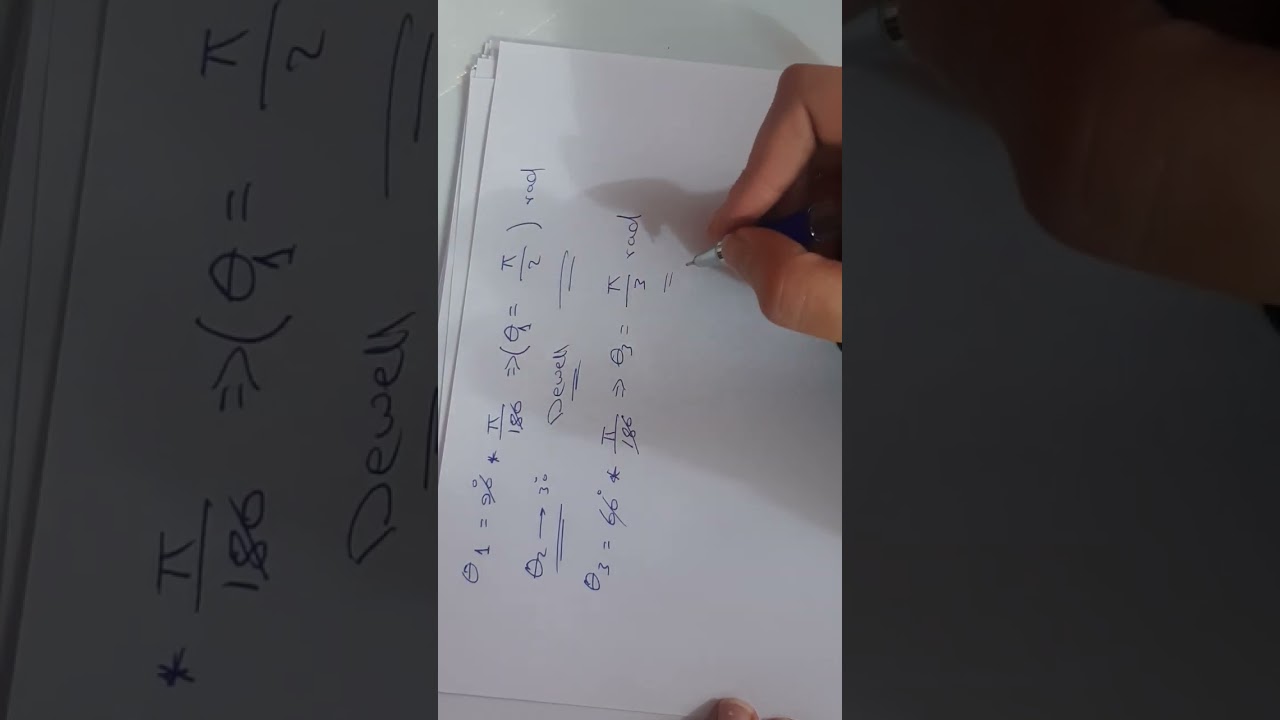 θ1 = 90° * π/180 ⇒ (θ1 = π/2) rad
θ2 → 30° Dewell
θ3 = 60° * π/180 ⇒ θ3 = π/3 rad